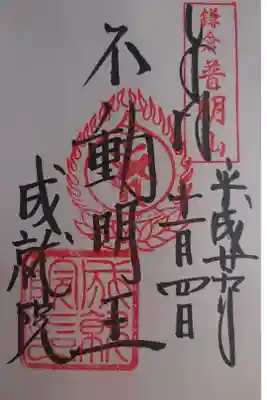 鎌倉普明山
奉拝
平成廿
十一月四日
不動明王
成就院